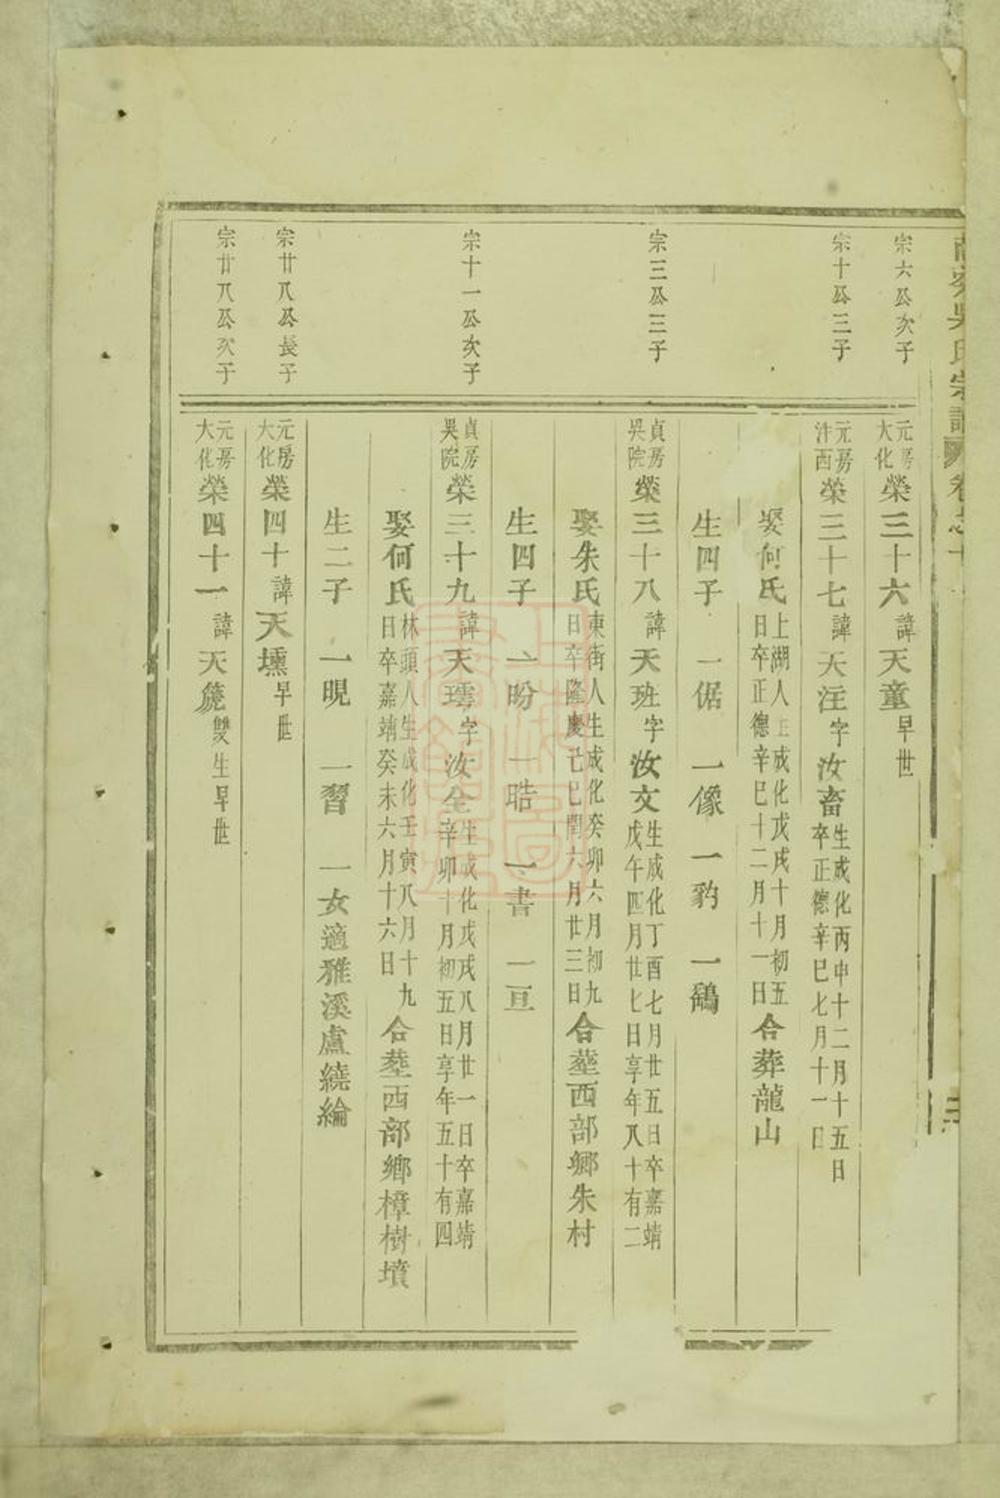 吳氏宗譜
宗六公次子
元房大化榮三十六諱天童早世
宗十公三子
元房汴西榮三十七諱天注字汝畜生成化丙申十二月十五日卒正德辛巳七月十一日
娶何氏上湖人生成化戊戌十月初五日卒正德辛巳十二月十一日合葬龍山
生四子 一倨 一像 一豹 一鷂
宗三公三子
貞房吳院榮三十八諱天班字汝文生成化丁酉七月廿五日卒嘉靖戊午四月廿七日享年八十有二
娶朱氏東街人生成化癸卯六月初九日卒隆慶己巳閏六月廿三日合塟西部鄉朱村
生四子 一盼 一晧 一書 一亘
宗十一公次子
貞房吳院榮三十九諱天瓀字汝全生成化戊戌八月廿一日卒嘉靖辛卯十月初五日享年五十有四
娶何氏林頭人生成化壬寅八月十九日卒嘉靖癸未六月十六日合塟西部鄉樟樹墳
生二子 一晛 一習 一女適雅溪盧繞綸
宗廿八公長子
元房大化榮四十諱天壎早世
宗廿八公次子
元房大化榮四十一諱天篪雙生早世